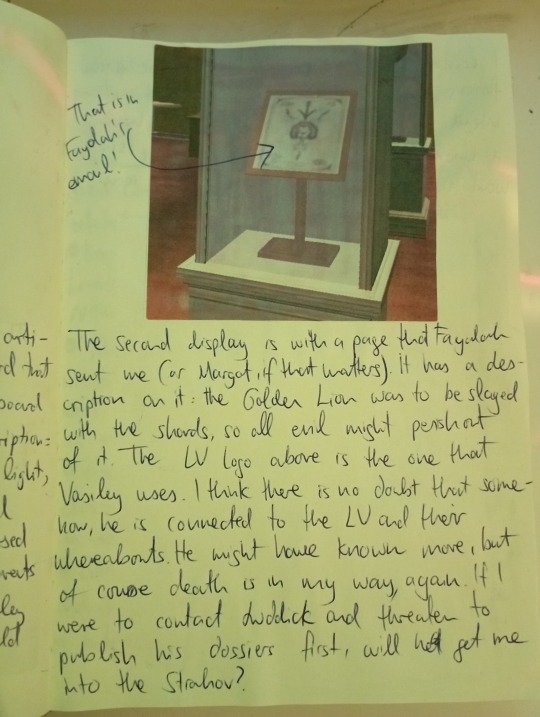 That is in
Faydah's
email!
The second display is with a page that Faydah
sent me (or Margot, if that matters). It has a des-
cription on it: the Golden Lion was to be slayed
with the shards, so all evil might
of it. The LV logo above is the one that
Vasiley uses. I think there is no doubt that some-
how, he is connected to the LV and their
whereabouts. He might have known more, but
of course death is in my way, again. If I
were to contact Luddick and threaten to
publish his dossiers first, will get me
into the Strahov?
light,